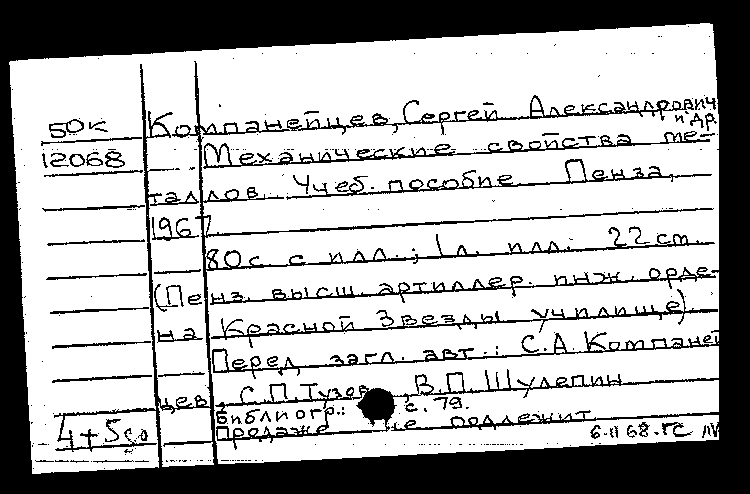 50к Компанейцев, Сергей Александрович
и др.
12068 Механические свойства ме-
таллов. Учеб. пособие. Пенза,
1967.
80с. с илл.; 1л. илл. 22см.
(Пенз. высш. артиллер. инж. орде-
на Красной Звезды училище).
Перед загл. авт.: С.А. Компаней
цев, С.П. Тузов, В.П. Шулепин
Библиогр.: с. 79.
Продаже не подлежит
4+5
6-II 68.